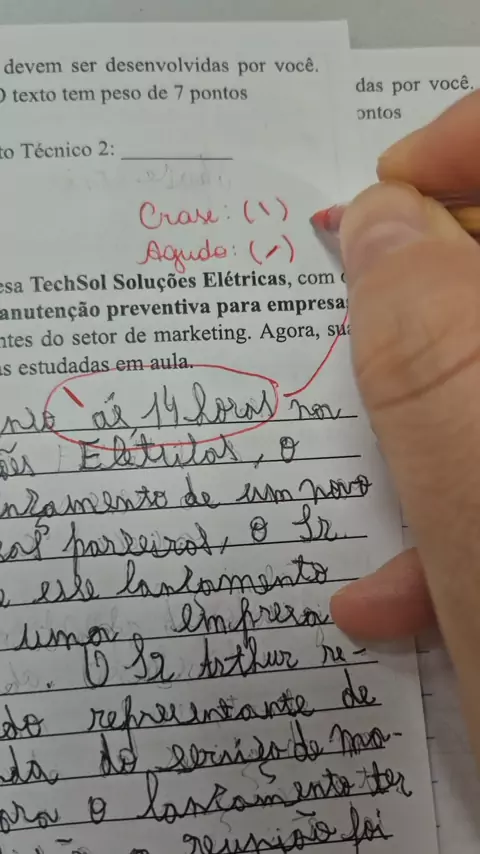 devem ser desenvolvidas por você.
O texto tem peso de 7 pontos
das por você.
ontos
to Técnico 2: ___________
Crase: (\)
Agudo: (/)
esa TechSol Soluções Elétricas, com
anutenção preventiva para empresa
ntes do setor de marketing. Agora, sua
as estudadas em aula.
ás 14 horas
ões Elétrilas, o
nzamento de um novo
parzeiros, o Sr.
e esse lanzamento
uma empresa
. O Sr Arthur re-
do representante de
da do servizo de ma-
ora o lanzamento ter
a reunião foi